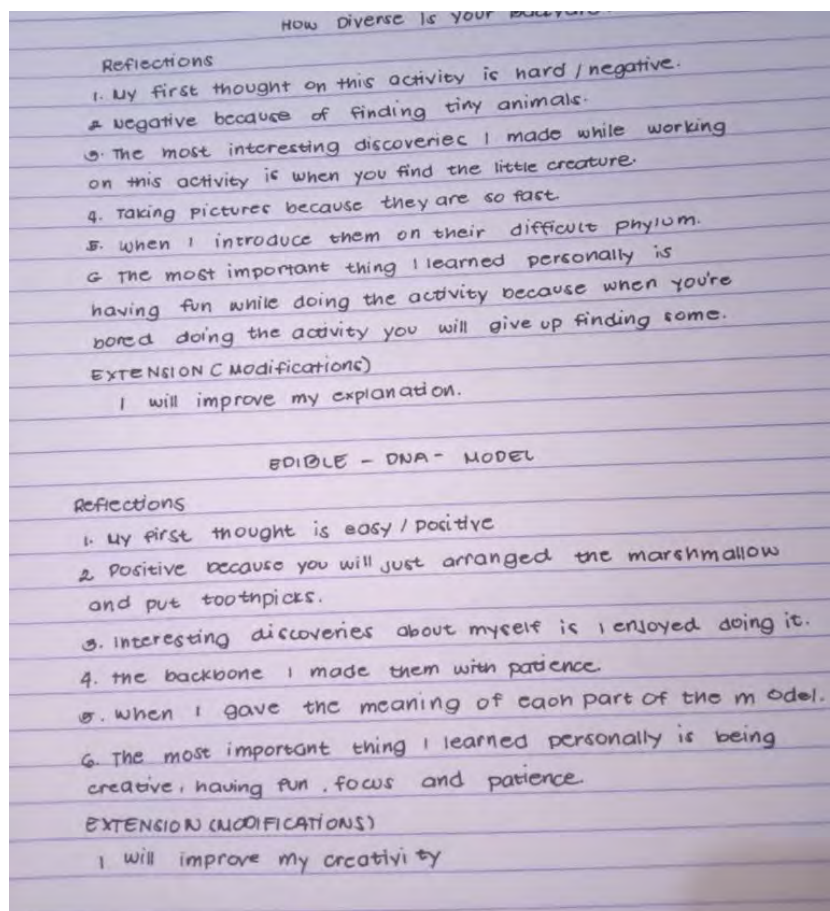 How Diverse Is your
Reflections
1. My first thought on this activity is hard / negative.
2 Negative because of finding tiny animals.
3. The most interesting discoveries I made while working
on this activity is when you find the little creature.
4. Taking pictures because they are so fast.
5. When I introduce them on their difficult phylum.
6 The most important thing I learned personally is
having fun while doing the activity because when you're
bored doing the activity you will give up finding some.
EXTENSION (Modifications)
I will improve my explanation.
EDIBLE - DNA - MODEL
Reflections
1. My first thought is easy / positive
2 Positive because you will just arranged the marshmallow
and put toothpicks.
3. Interesting discoveries about myself is I enjoyed doing it.
4. The backbone I made them with patience.
5. When I gave the meaning of each part of the model.
6. The most important thing I learned personally is being
creative, having fun, focus and patience.
EXTENSION (MODIFICATIONS)
I will improve my creativity